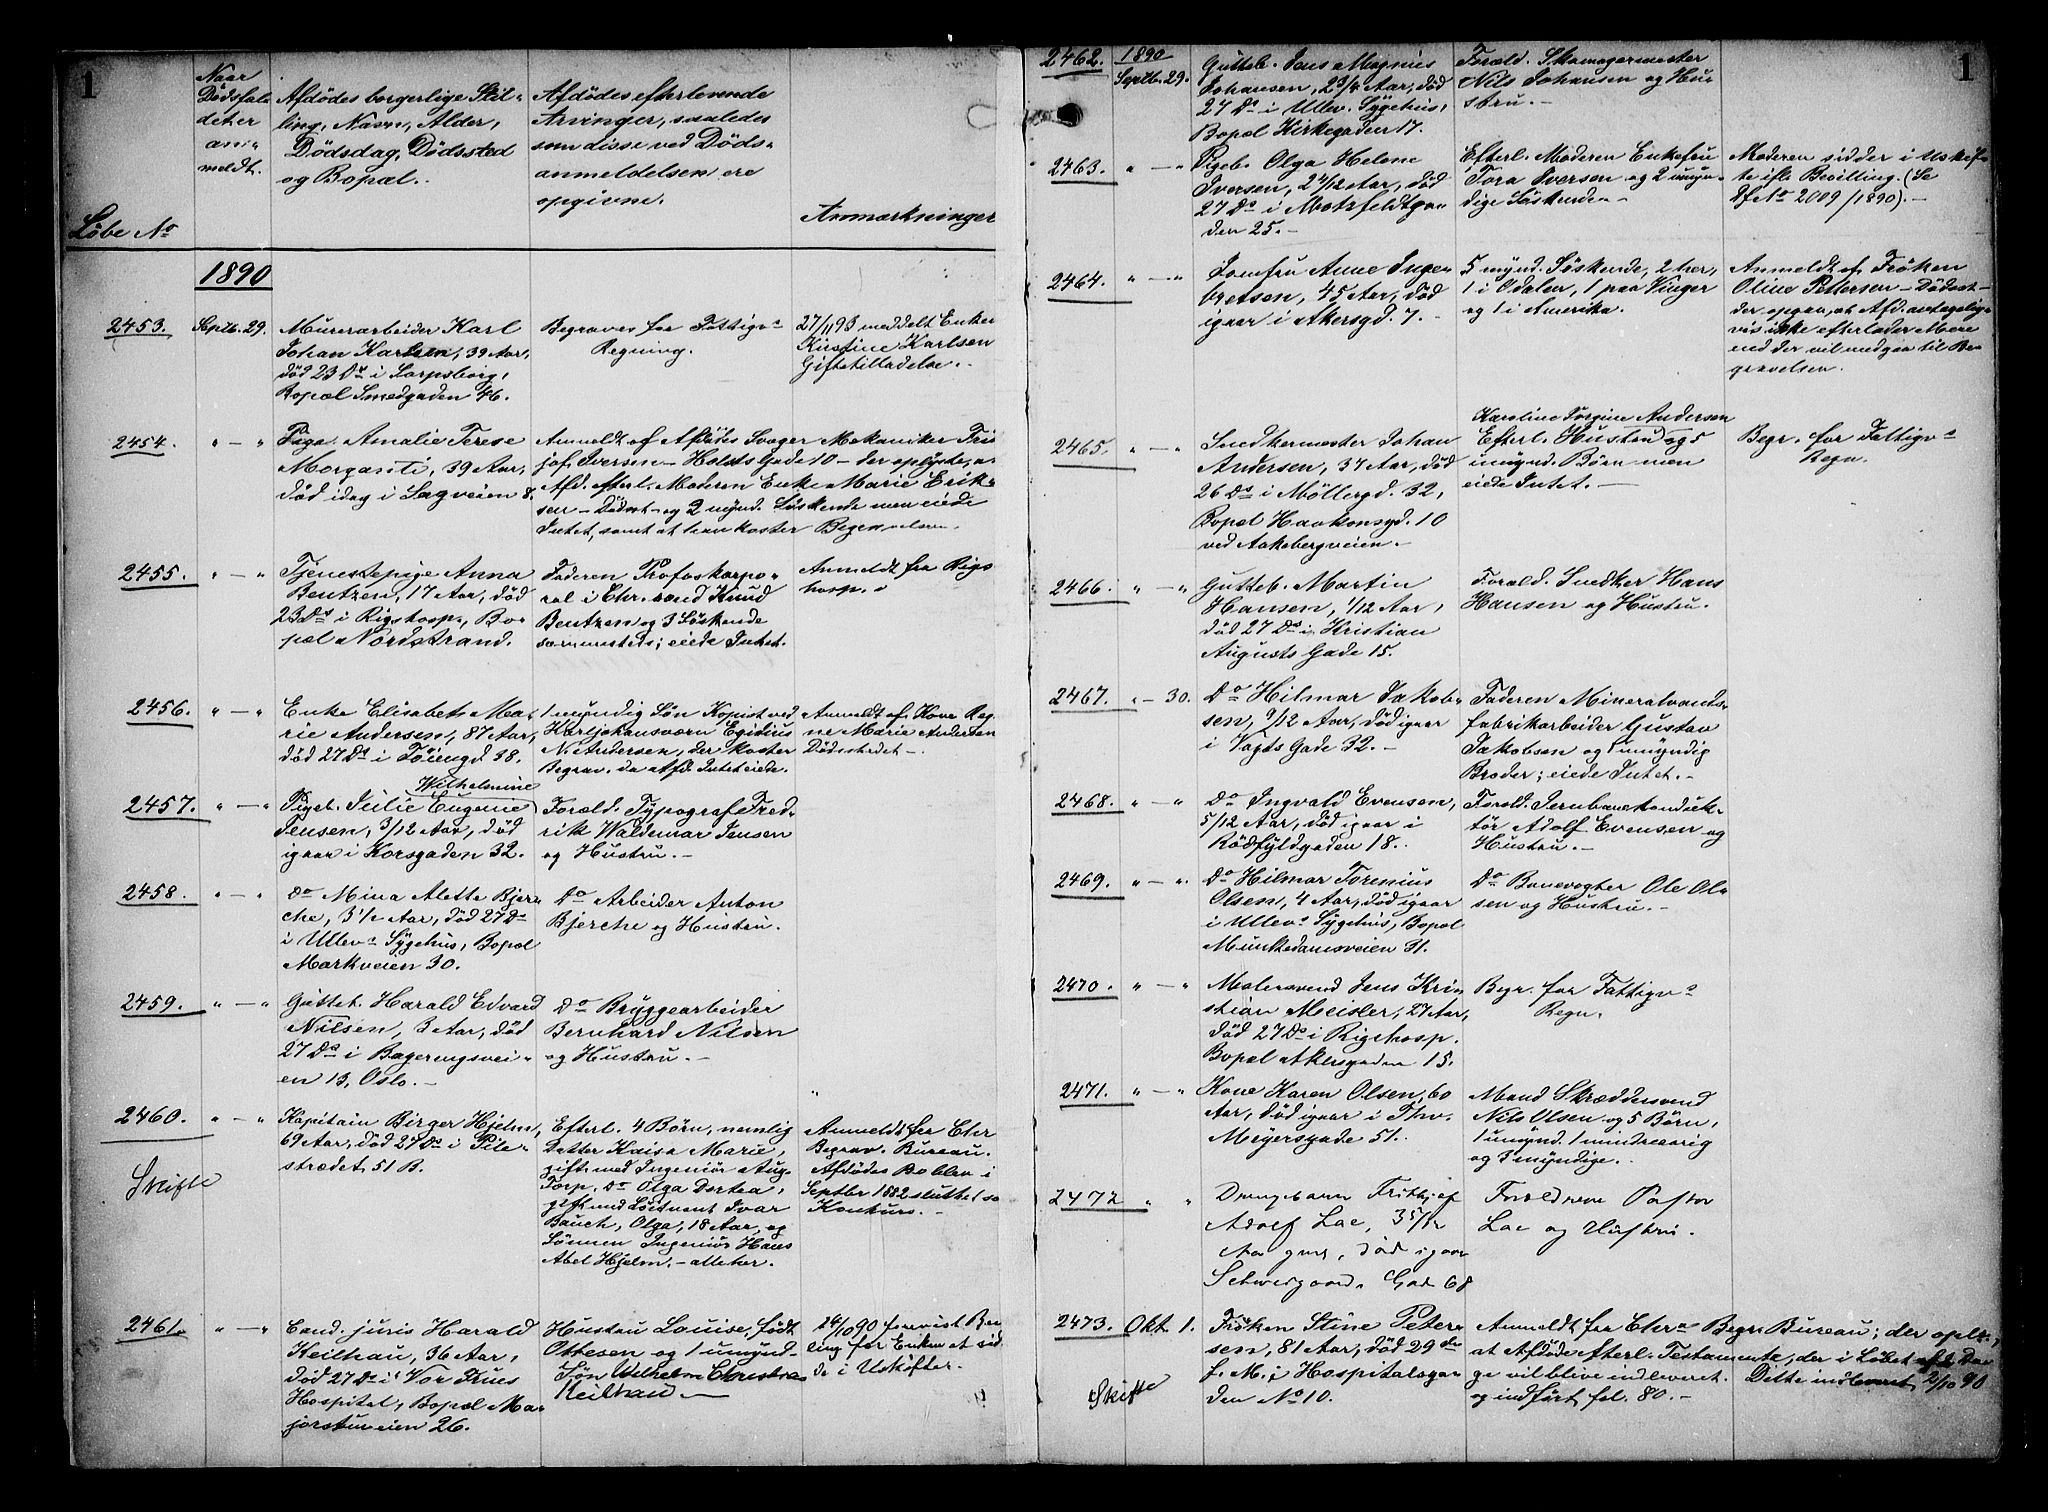 1
Løbe No
Naar
Dødsfal-
det er
an-
meldt.
Afdødes borgerlige Stil-
ling, Navn, Alder,
Dødsdag, Dødssted
og Bopæl.
Afdødes efterlevende
Arvinger, saaledes
som disse ved Døds-
anmeldelsen ere
opgivne.
Anmærkninger
1890
2453.
Septb. 29.
Murerarbeider Karl
Johan Karlsen, 39 Aar,
død 23 Ds i Sarpsborg,
Bopæl Smedgaden 46.
Begraves for Fattigvs
Regning.
27/11 93 meddelt Enken
Kristine Karlsen
Giftetilladelse.
2454.
" — "
Pige Amalie Terese
Morganti, 39 Aar,
død idag i Sagveien 8.
Anmeldt af Afdødes Svoger Mekaniker Fri
jof Iversen - Holsts Gade 10 - der oplyste, at
Afd. efterl. Moderen Enke Marie Erik-
sen - Dødsst - og 2 mynd. Søskende men eiede
Intet, samt at han koster Begravelsen.
2455.
" — "
Tjenestepige Anna
Bentzen, 17 Aar, død
23 Ds i Rigshosp., Bo-
pæl Nordstrand.
Faderen Profoskorpo-
ral i Chr.sand Knud
Bentzen og 3 Søskende
sammesteds; eiede Intet.
Anmeldt fra Rigs
hosp.
2456.
" — "
Enke Elisabeth Ma-
rie Andersen, 87 Aar,
død 27 Ds i Tøiengd 38.
1 myndig Søn Kopist ved
Karljohansværn Egidius
N. Andersen, der koster
Begrav. da Afd. Intet eiede.
Anmeldt af Kone Reg-
ine Marie Andersen
Dødsstedet -.
2457.
" — "
Wilhelmine
Pigeb. Julie Eugenie
Jensen, 3/12 Aar, død
igaar i Korsgaden 32.
Foræld. Typograf Fred-
rik Waldemar Jensen
og Hustru. -
2458.
" — "
Do Mina Alette Bjer-
che, 3 1/2 Aar, død 27 Ds
i Ullevs Sygehus, Bopæl
Markveien 30.
Do Arbeider Anton
Bjerche og Hustru.
2459.
" — "
Gutteb. Harald Edvard
Nilsen, 3 Aar, død
27 Ds i Bagerengsvei-
en 13, Oslo. -
Do Bryggearbeider
Bernhard Nilsen
og Hustru. -
2460.
" — "
Skifte
Kapitain Birger Hjelm,
69 Aar, død 27 Ds i Pile-
strædet 51 B.
Efterl. 4 Børn, nemlig
Datter Kaisa Marie,
gift med Ingeniør Aug.
Torp, Do Olga Dortea,
gift med Løitnant Ivar
Bauch, Olga, 18 Aar, og
Sønnen Ingeniør Hans
Abel Hjelm. - alle her.
Anmeldt fra Chr
Begrav. Bureau.
Afdødes Bo blev i
Septbr 1882 sluttet so
Konkurs. -
2461.
" — "
Cand. juris Harald
Keilhau, 36 Aar,
død 27 Ds i Vor Frues
Hospital, Bopæl Ma-
jorstuveien 26.
Hustru Louise, født
Ottesen og 1 umynd.
Søn Wilhelm Christian
Keilhau. -
24/10 90 forevist Bevil-
ling for Enken at sid-
de i Uskiftet.
1
2462.
1890
Septb. 29.
Gutteb. Jens Magnus
Johansen, 2 3/4 Aar, død
27 Ds i Ullev. Sygehus,
Bopæl Kirkegaden 17.
Foræld. Skomagermester
Nils Johansen og Hu-
stru. -
2463.
" — "
Pigeb. Olga Helene
Iversen, 2 4/12 Aar, død
27 Ds i Motzfeldtga-
den 25. -
Efterl. Moderen Enkefru
Tora Iversen og 2 umyn-
dige Søskende -
Moderen sidder i Uskif-
te ifl. Bevilling. (Se
Df No 2009/1890). -
2464.
" — "
Jomfru Anne Inge-
bretsen, 45 Aar, død
igaar i Akersgd. 7. -
5 mynd. Søskende, 2 her,
1 i Odalen, 1 paa Vinger
og 1 i Amerika.
Anmeldt af Frøken
Oline Pettersen - Dødsst -
der opgav, at Afd. antagelig-
vis ikke efterlader Mere
end der vil medgaa til Be-
gravelsen.
2465.
" — "
Snedkermester Johan
Andersen, 37 Aar, død
26 Ds i Møllergd. 32,
Bopæl Haakonsgd. 10
ved Aakebergveien. -
Karoline Jørgine Andersen
Efterl. Hustru og 5
umynd. Børn men
eiede Intet. -
Begr. for Fattigvs
Regn.
2466.
" — "
Gutteb. Martin
Hansen, 1/12 Aar,
død 27 Ds i Kristian
Augusts Gade 15.
Foræld. Snedker Hans
Hansen og Hustru.
2467.
" — 30.
Do Hilmar Jakob-
sen, 9/12 Aar, død igaar
i Vogts Gade 32. -
Faderen Mineralvands-
fabrikarbeider Gustav
Jakobsen og 1 umyndig
Broder; eiede Intet. -
2468.
" — "
Do Ingvald Evensen,
5/12 Aar, død igaar i
Rødfyldgaden 18.
Foræld. Jernbanekonduk-
tør Adolf Evensen og
Hustru. -
2469.
" — "
Do Hilmar Torenius
Olsen, 4 Aar, død igaar
i Ullevs Sygehus, Bopæl
Munkedamsveien 31.
Do Banevogter Ole Ol-
sen og Hustru. -
2470.
" — "
Malersvend Jens Kri-
stian Meisler, 27 Aar,
død 27 Ds i Rigshosp.
Bopæl Akersgaden 15.
Begr. for Fattigvs
Regn.
2471.
" — "
Kone Karen Olsen, 60
Aar, død igaar i Thv.
Meyersgade 51.
Mand Skræddersvend
Nils Olsen og 5 Børn,
1 umynd. 1 mindreaarig
og 3 myndige.
2472
" "
Drengebarn Frithjof
Adolf Lae, 3 5/12
Aar gml, død igaar
Schweigaards Gad 68
Forældrene Pastor
Lae og Hustru.
2473.
Okt 1.
Skifte
Frøken Stine Peter-
sen, 81 Aar, død 29 de
f. M. i Hospitalsga-
den No 10.
Anmeldt fra Chra Begr. Bureau; der oplt.,
at Afdøde efterl. Testamente, der i Løbet af et Da-
ge vil blive indleveret. Dette indleveret 2/10 90
og indført fol. 80. -